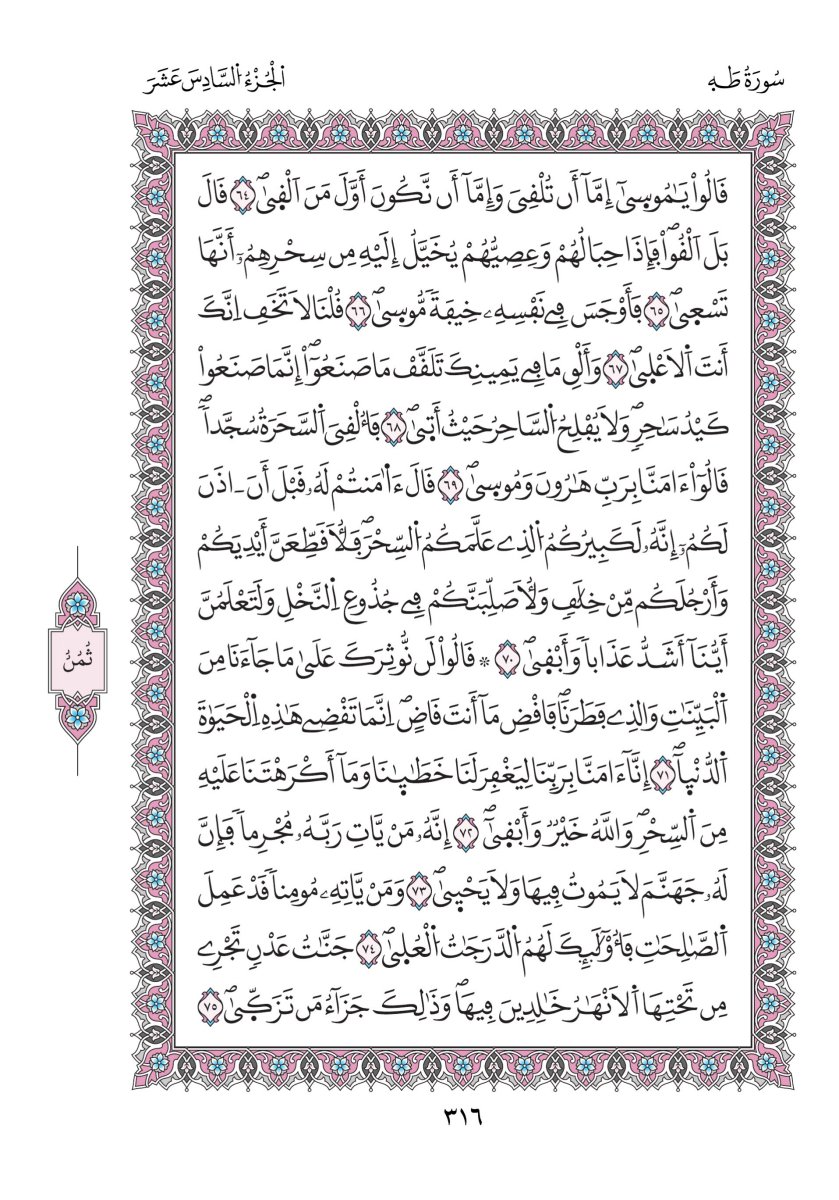 سُورَةُ طَهِ
اَلْجُزْءُ السَّادِسَ عَشَرَ
قَالُواْ يَٰمُوسِىٰٓ إِمَّآ أَن تُلْقِىَ وَإِمَّآ أَن نَّكُونَ أَوَّلَ مَنَ اَلْقِىٰۖ ٦٤ قَالَ
بَلَ اَلْقُواْۖ فَإِذَا حِبَالُهُمْ وَعِصِيُّهُمْ يُخَيَّلُ إِلَيْهِ مِن سِحْرِهِمُۥٓ أَنَّهَا
تَسْعِىٰۖ ٦٥ فَأَوْجَسَ فِے نَفْسِهِۦ خِيفَةٗ مُّوسِىٰۖ ٦٦ قُلْنَا لَا تَخَفِ اِنَّكَ
أَنتَ اَلَاعْلِىٰۖ ٦٧ وَأَلْقِ مَا فِے يَمِينِكَ تَلَقَّفْ مَا صَنَعُوٓاْۖ إِنَّمَا صَنَعُواْ
كَيْدُ سَٰحِرٖۖ وَلَا يُفْلِحُ اُلسَّاحِرُ حَيْثُ أَتِىٰۖ ٦٨ فَأُلْقِىَ اَلسَّحَرَةُ سُجَّداٗۖ
قَالُوٓاْ ءَامَنَّا بِرَبِّ هَٰرُونَ وَمُوسِىٰۖ ٦٩ قَالَ ءَاٰمَنتُمْ لَهُۥ قَبْلَ أَنَ ـ اذَنَ
لَكُمُۥٓ إِنَّهُۥ لَكَبِيرُكُمُ اُلذِے عَلَّمَكُمُ اُلسِّحْرَۖ فَلَأُقَطِّعَنَّ أَيْدِيَكُمْ
وَأَرْجُلَكُم مِّنْ خِلَٰفٖ وَلَأُصَلِّبَنَّكُمْ فِے جُذُوعِ اِلنَّخْلِ وَلَتَعْلَمُنَّ
أَيُّنَآ أَشَدُّ عَذَاباٗ وَأَبْقِىٰۖ ٧٠ ۞ قَالُواْ لَن نُّوثِرَكَ عَلَىٰ مَا جَآءَنَا مِنَ
اَلْبَيِّنَٰتِ وَالذِے فَطَرَنَاۖ فَاقْضِ مَآ أَنتَ قَاضٍۖ اِنَّمَا تَقْضِے هَٰذِهِ اِلْحَيَوٰةَ
اَلدُّنْيِآۖ ٧١ إِنَّآ ءَامَنَّا بِرَبِّنَا لِيَغْفِرَ لَنَا خَطَٰيِٰنَا وَمَآ أَكْرَهْتَنَا عَلَيْهِ
مِنَ اَلسِّحْرِۖ وَاللَّهُ خَيْرٞ وَأَبْقِىٰٓۖ ٧٢ إِنَّهُۥ مَنْ يَّاتِ رَبَّهُۥ مُجْرِماٗ فَإِنَّ
لَهُۥ جَهَنَّمَ لَا يَمُوتُ فِيهَا وَلَا يَحْيِىٰۖ ٧٣ وَمَنْ يَّاتِهِۦ مُومِناٗ قَدْ عَمِلَ
اَلصَّٰلِحَٰتِ فَأُوْلَٰٓئِكَ لَهُمُ اُلدَّرَجَٰتُ اُلْعُلِىٰۖ ٧٤ جَنَّٰتُ عَدْنٖ تَجْرِے
مِن تَحْتِهَا اَلَانْهَٰرُ خَٰلِدِينَ فِيهَاۖ وَذَٰلِكَ جَزَآءُ مَن تَزَكِّىٰۖ ٧٥
ثُمُنُ
٣١٦